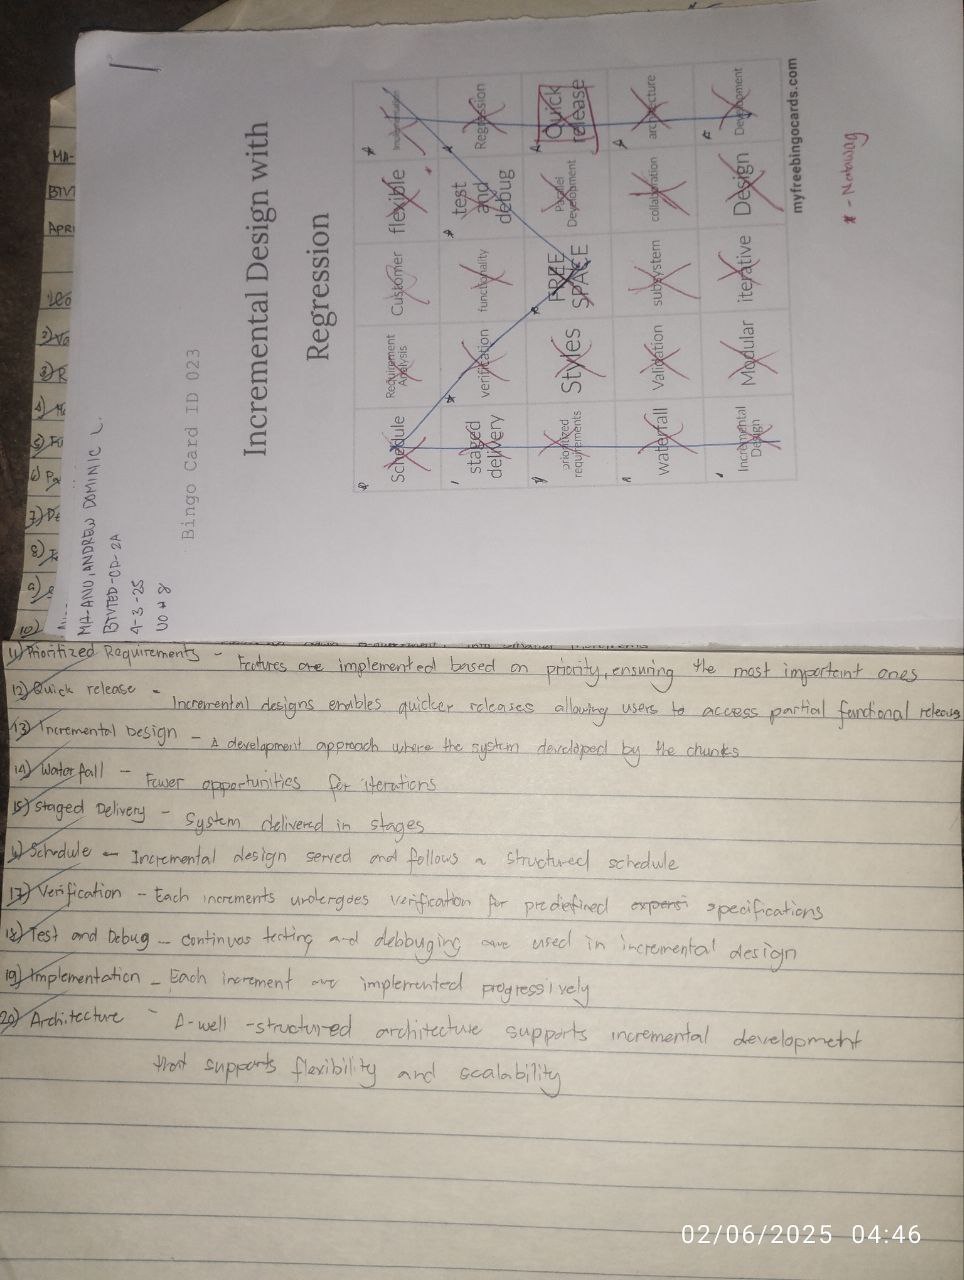 MA-ANU, ANDREW DOMINIC L.
BTVTED-CP-2A
4-3-25
UO # 8
Bingo Card ID 023
Incremental Design with
Regression
Schedule
Requirement Analysis
Customer
flexible
Implementation
staged delivery
verification
functionality
test and debug
Regression
prioritized requirements
Styles
FREE SPACE
Parallel Development
Quick release
waterfall
Validation
subsystem
collaboration
architecture
Incremental Design
Modular
iterative
Design
Development
myfreebingocards.com
* - Natawag
MA-
BTVT
APRI
2) Va
3) R
4) Mo
6) Pa
7) De
8)
9)
10)
11) Prioritized Requirements - Features are implemented based on priority, ensuring the most important ones
12) Quick release - Incremental designs enables quicker releases allowing users to access partial functional releases
13) Incremental Design - A development approach where the system developed by the chunks
14) Waterfall - Fewer opportunities for iterations
15) Staged Delivery - System delivered in stages
16) Schedule - Incremental design served and follows a structured schedule
17) Verification - Each increments undergoes verification for predefined specifications
18) Test and Debug - continuos testing and debbuging are used in incremental design
19) Implementation - Each increment are implemented progressively
20) Architecture - A-well-structured architecture supports incremental development
that supports flexibility and scalability
02/06/2025 04:46